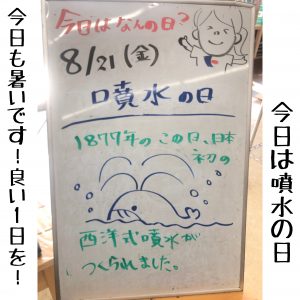 今日は噴水の日
今日はなんの日?
8/21(金)
噴水の日
1879年のこの日、日本
初の
西洋式噴水が
つくられました。
今日も暑いです!良い1日を!